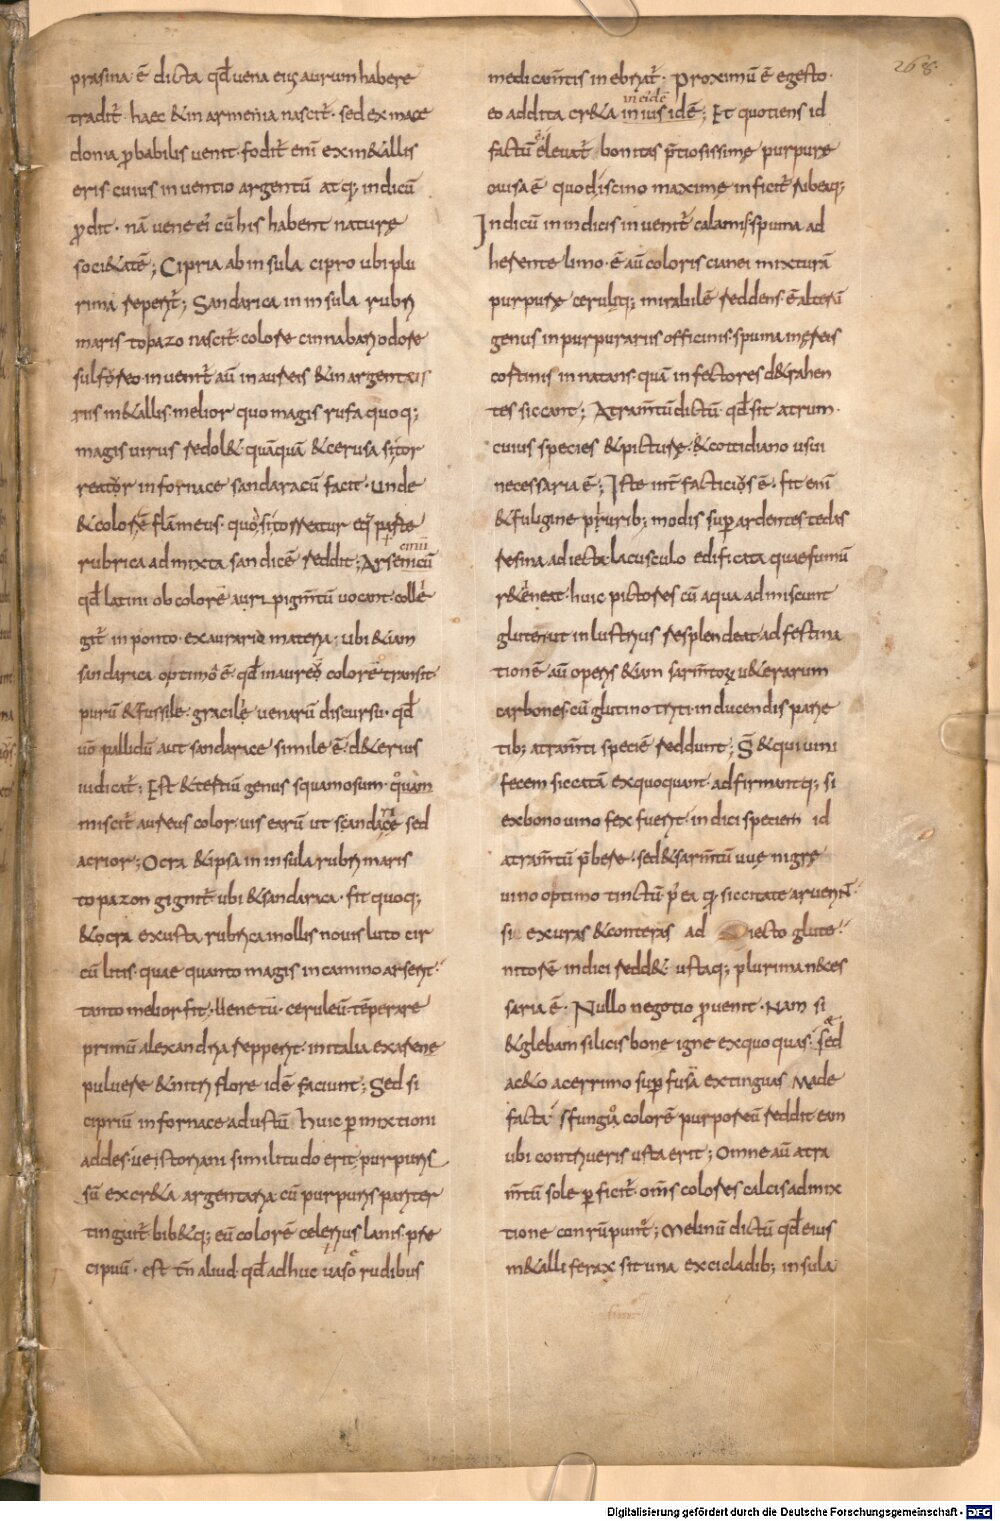 268
prasina ē dicta qđ uena eius aurum habere
tradit̄ haec & in armenia nascit̄ sed ex mace
donia probabilis uenit fodit̄ enī ex in&allis
eris cuius inuentio argentū atq; indicū
prodit nā uene ei cū his habent nature
soci&atē; Cipria ab insula cipro ubi plu
rima reperit̄; Sandarica in insula rubri
maris topazo nascit̄ colore cinnabari odore
sulforeo inuenit̄ aū in aureis & in argentariis
m&allis melior quo magis rufa quoq;
magis uirus redol& quāquā & cerusa si tor
reatur in fornace sandaracū facit unde
& colore flāmeus quo si torreatur eius parte
rubrica admixta sandicē reddit; Arsenicū
qđ latini ob colorē auri pigm̄tū uocant colle
git̄ in ponto ex auraria materia ubi & iam
sandarica optimo ē qđ in aureo colore transit
purū & fussile gracile uenarū discursu qđ
uō pallidū aut sandarace simile ē d&erius
iudicat̄; Est & tertiū genus squamosum quam
miscit̄ aureus color uis earū ut scandarace sed
acrior; Ocra & ipsa in insula rubri maris
topazon gignit̄ ubi & sandarica fit quoq;
& ocra exusta rubrica in ollis nouis luto cir
cū litis quae quanto magis in camino arserit
tanto melior fit; Uenetū ceruleū tēperare
primū alexandria repperit in italia ex arene
puluere & nitri flore idē faciunt; Sed si
cipriū in fornace adustū huic permixtioni
addes uestoriani similitudo erit; purpuris
sū ex cr&a argentaria cū purpuris pariter
tinguit̄ bib&q; eū colorē celerius lanis pre
cipuū est tn̄ aliud qđ adhuc uaso rudibus
medicam̄tis inebriat̄ Proximū ē egesto
eo addita cr&a in ius idē; Et quotiens id
factū ē leuat̄ bonitas p̄tiosissime purpure
Indicū in indicis inuenit̄ calamis spuma ad
herente limo ē aū coloris cianei mixturā
purpure ceruliq; mirabilē reddens ē alterū
genus in purpurariis officinis spuma in ereis
cortinis innatans quā infectores d&rahen
tes siccant; Atram̄tū dictū qđ sit atrum
cuius species & picture & cottidiano usui
necessaria ē; Iste int̄ facticios ē fit enī
& fuligine pluribus modis super ardentes tedas
resina adiecta lacusculo edificata quae fumū
r&eneat huic pictores cū aqua admiscunt
tionē aū operis &iam sarm̄torum u&erarum
carbones cū glutino triti inducendis parie
tib; atram̄ti speciē reddunt; S & qui uini
fecem siccatā exquoquant adfirmantq; si
ex bono uino fex fuerit indici speciem id
atram̄tū p̄bere sed & sarm̄tū uue nigre
si exuras & conteras ad iecto glute
nitorē indici redd& ustaq; plurima neces
saria ē Nullo negotio prouenit Nam si
& glebam silicis bone igne exquoquas sed
ac&o acerrimo super fusā extinguas Made
facta sfungia colorē purporeū reddit eam
ubi contriueris usta erit; Omne aū atra
m̄tū sole perficit̄ om̄s colores calcis admix
tione conrūpunt̄; Melinū dictū qđ eius
m&alli ferax sit una ex cicladib; insula
Digitalisierung gefördert durch die Deutsche Forschungsgemeinschaft - DFG